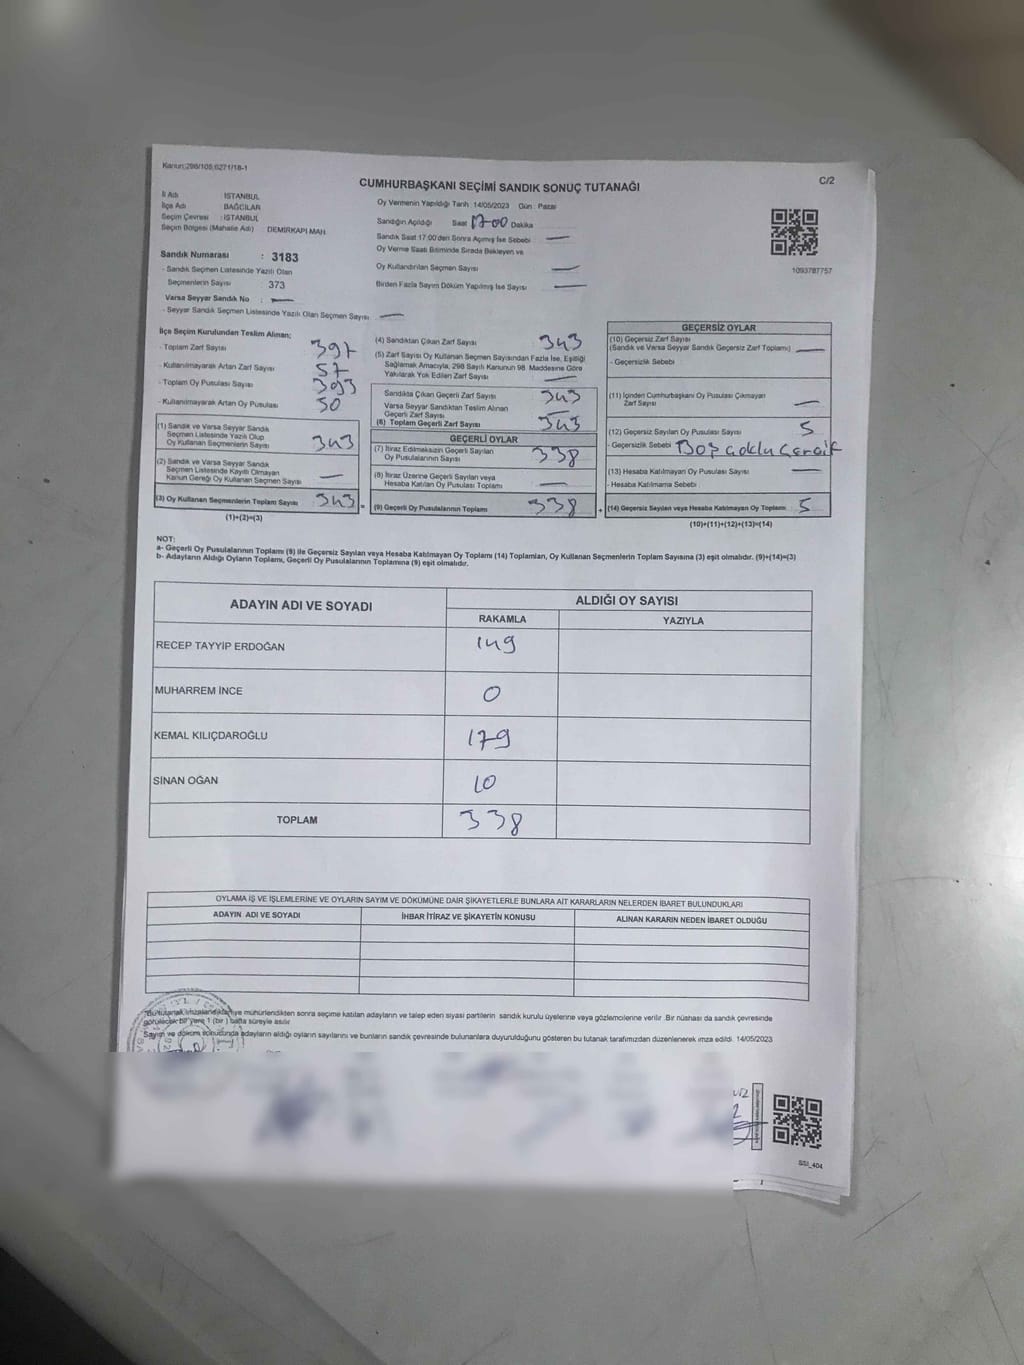 Kanun:298/105;6271/18-1
C/2
CUMHURBAŞKANI SEÇİMİ SANDIK SONUÇ TUTANAĞI
İl Adı : İSTANBUL
İlçe Adı : BAĞCILAR
Seçim Çevresi : İSTANBUL
Seçim Bölgesi (Mahalle Adı) DEMİRKAPI MAH
Sandık Numarası : 3183
- Sandık Seçmen Listesinde Yazılı Olan
Seçmenlerin Sayısı 373
Varsa Seyyar Sandık No : —
- Seyyar Sandık Seçmen Listesinde Yazılı Olan Seçmen Sayısı —
Oy Vermenin Yapıldığı Tarih :14/05/2023 Gün : Pazar
Sandığın Açıldığı Saat 17 00 Dakika
Sandık Saat 17:00'den Sonra Açılmış İse Sebebi —
Oy Verme Saati Bitiminde Sırada Bekleyen ve
Oy Kullandırılan Seçmen Sayısı —
Birden Fazla Sayım Döküm Yapılmış İse Sayısı —
1093787757
İlçe Seçim Kurulundan Teslim Alınan;
- Toplam Zarf Sayısı 397
- Kullanılmayarak Artan Zarf Sayısı 57
- Toplam Oy Pusulası Sayısı 393
- Kullanılmayarak Artan Oy Pusulası 50
(1) Sandık ve Varsa Seyyar Sandık
Seçmen Listesinde Yazılı Olup
Oy Kullanan Seçmenlerin Sayısı 343
(2) Sandık ve Varsa Seyyar Sandık
Seçmen Listesinde Kayıtlı Olmayan
Kanun Gereği Oy Kullanan Seçmen Sayısı —
(3) Oy Kullanan Seçmenlerin Toplam Sayısı 343 =
(1)+(2)=(3)
(4) Sandıktan Çıkan Zarf Sayısı 343
(5) Zarf Sayısı Oy Kullanan Seçmen Sayısından Fazla İse, Eşitliği
Sağlamak Amacıyla, 298 Sayılı Kanunun 98. Maddesine Göre
Yakılarak Yok Edilen Zarf Sayısı —
Sandıkta Çıkan Geçerli Zarf Sayısı 343
Varsa Seyyar Sandıktan Teslim Alınan
Geçerli Zarf Sayısı —
(6) Toplam Geçerli Zarf Sayısı 343
GEÇERLİ OYLAR
(7) İtiraz Edilmeksizin Geçerli Sayılan
Oy Pusulalarının Sayısı 338
(8) İtiraz Üzerine Geçerli Sayılan veya
Hesaba Katılan Oy Pusulası Toplamı —
(9) Geçerli Oy Pusulalarının Toplamı 338 +
GEÇERSİZ OYLAR
(10) Geçersiz Zarf Sayısı
(Sandık ve Varsa Seyyar Sandık Geçersiz Zarf Toplamı) —
- Geçersizlik Sebebi
(11) İçinden Cumhurbaşkanı Oy Pusulası Çıkmayan
Zarf Sayısı —
(12) Geçersiz Sayılan Oy Pusulası Sayısı 5
- Geçersizlik Sebebi Boş çoklu
(13) Hesaba Katılmayan Oy Pusulası Sayısı —
- Hesaba Katılmama Sebebi
(14) Geçersiz Sayılan veya Hesaba Katılmayan Oy Toplamı 5
(10)+(11)+(12)+(13)=(14)
NOT:
a- Geçerli Oy Pusulalarının Toplamı (9) ile Geçersiz Sayılan veya Hesaba Katılmayan Oy Toplamı (14) Toplamları, Oy Kullanan Seçmenlerin Toplam Sayısına (3) eşit olmalıdır. (9)+(14)=(3)
b- Adayların Aldığı Oyların Toplamı, Geçerli Oy Pusulalarının Toplamına (9) eşit olmalıdır.
ADAYIN ADI VE SOYADI ALDIĞI OY SAYISI
RAKAMLA YAZIYLA
RECEP TAYYİP ERDOĞAN 149
MUHARREM İNCE 0
KEMAL KILIÇDAROĞLU 179
SİNAN OĞAN 10
TOPLAM 338
OYLAMA İŞ VE İŞLEMLERİNE VE OYLARIN SAYIM VE DÖKÜMÜNE DAİR ŞİKAYETLERLE BUNLARA AİT KARARLARIN NELERDEN İBARET BULUNDUKLARI
ADAYIN ADI VE SOYADI İHBAR İTİRAZ VE ŞİKAYETİN KONUSU ALINAN KARARIN NEDEN İBARET OLDUĞU
"Bu tutanak imzalandıktan ve mühürlendikten sonra seçime katılan adayların ve talep eden siyasi partilerin sandık kurulu üyelerine veya gözlemcilerine verilir .Bir nüshası da sandık çevresinde
görülecek bir yere 1 (bir ) hafta süreyle asılır
Sayım ve döküm sonucunda adayların aldığı oyların sayılarını ve bunların sandık çevresinde bulunanlara duyurulduğunu gösteren bu tutanak tarafımızdan düzenlenerek imza edildi. 14/05/2023
SSI_404